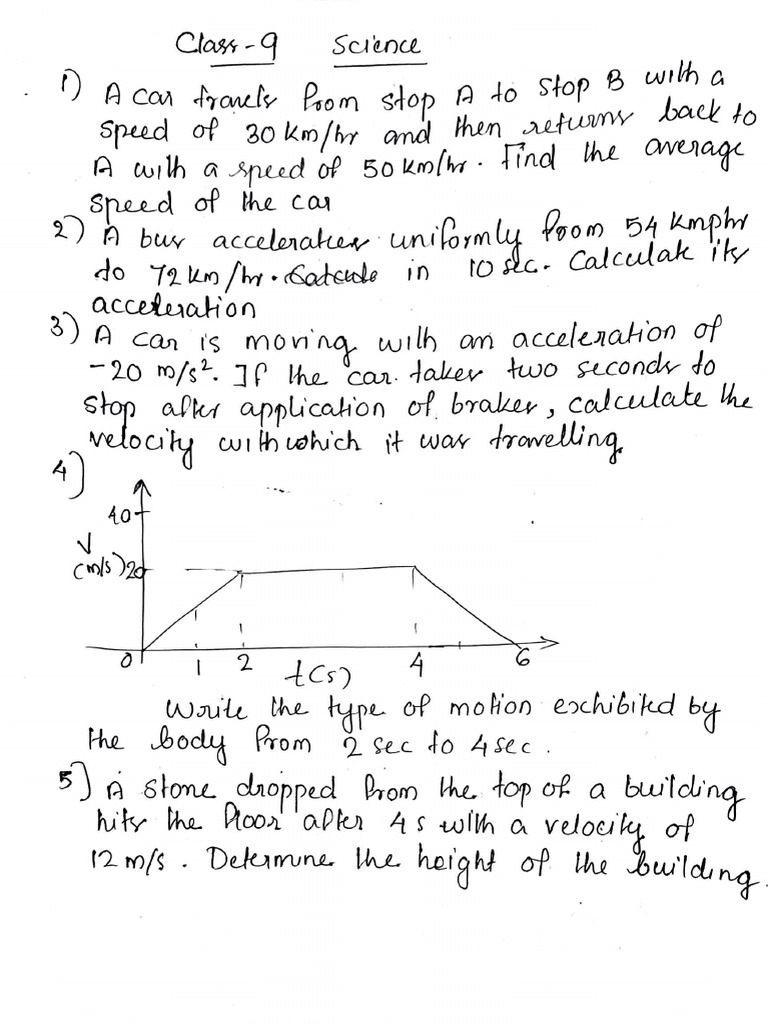 Class-9 Science
1) A car travels from stop A to stop B with a
speed of 30 km/hr and then returns back to
A with a speed of 50 km/hr. Find the average
speed of the car
2) A bus accelerates uniformly from 54 kmphr
to 72 km/hr. in 10 sec. Calculate its
acceleration
3) A car is moving with an acceleration of
-20 m/s². If the car takes two seconds to
stop after application of brakes, calculate the
velocity with which it was travelling.
4)
40
V
(m/s) 20
0 1 2 4 6
t(s)
Write the type of motion exhibited by
the body from 2 sec to 4 sec.
5) A stone dropped from the top of a building
hits the floor after 4 s with a velocity of
12 m/s. Determine the height of the building.